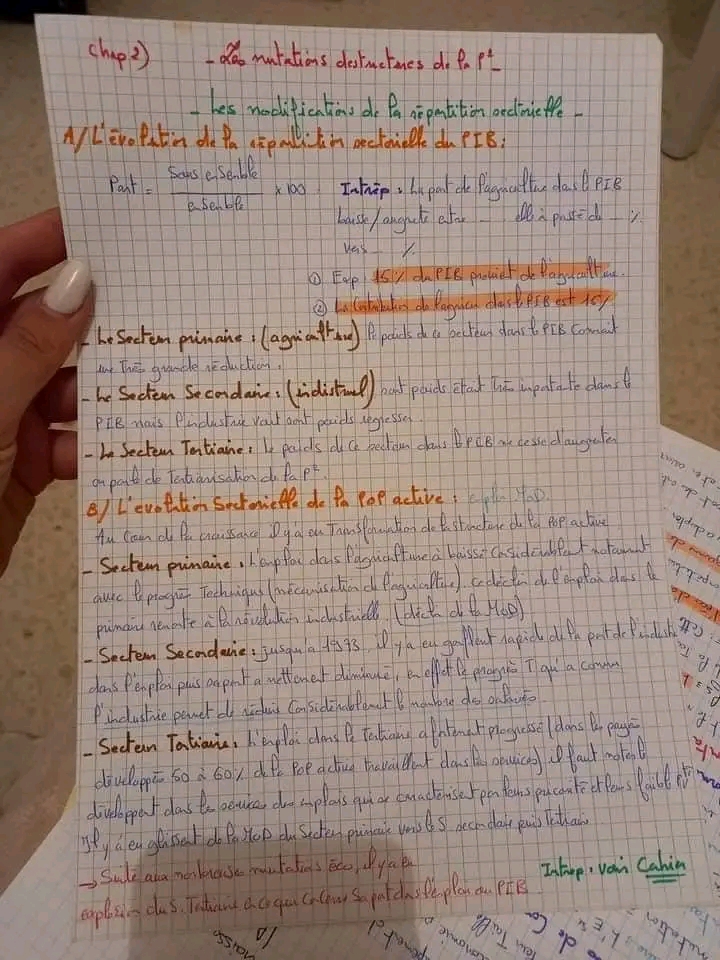 Chap 2) - Les mutations destructures de la P° -
- Les modifications de la répartition sectorielle -
A/ L'évolution de la répartition sectorielle du PIB :
Part = sous ensemble / ensemble × 100
Intrép : La part de l'agriculture dans le PIB
baisse/augmente entre ... elle a passé de ... %
vers ... %
① Exp : 15% du PIB provient de l'agriculture.
② La Contribution de l'agricu dans le PIB est 15%
- Le Secteur primaire : (agriculture) le poids de ce secteur dans le PIB Connait
une Très grande réduction.
- Le Secteur Secondaire : (indistriel) sont poids était Très inportante dans le
PIB mais l'industrie voit sont poids régresser.
- Le Secteur Tertiaire : le poids de ce secteur dans le PIB ne cesse d'augmenter
on parle de Tertiairisation de la P°.
B/ L'evolution Sectorielle de la POP active : emploi MoD.
Au Cour de la croissance il y'a eu Transformation de la structure de la POP active
- Secteur primaire : L'emploi dans l'agriculture à baissé Considérablent notamment
avec le progrès Technique (mécanisation de l'agriculture). ce déclin de l'emploi dans le
primaire remonte à la révolution industrielle. (déclin de la MoD)
- Secteur Secondaire : jusqu'a 1973, il y'a eu gonflent rapide de la part de l'industrie
dans l'emploi puis sa part a nettement diminué, en effet le progrès T qu'a connu
l'industrie permet de réduire Considérablement le nombre des salariés
- Secteur Tertiaire : L'emploi dans le Tertiaire a fortement progressé (dans les payés
développés 50 à 60% de la POP active travaillent dans les services) il faut noter le
développent dans les services des emplois qui se caractérisent par leurs précarité et leurs faible pt
Il y'a eu glissent de la MoD du Secteur primaire vers le S. secondaire puis Tertiaire
→ Suite aux nombreuse mutations éco, il y a eu
explosion du S. Tertiaire en ce qui Concerne Sa part dans l'emploi ou PIB.
Intrep : voir Cahier